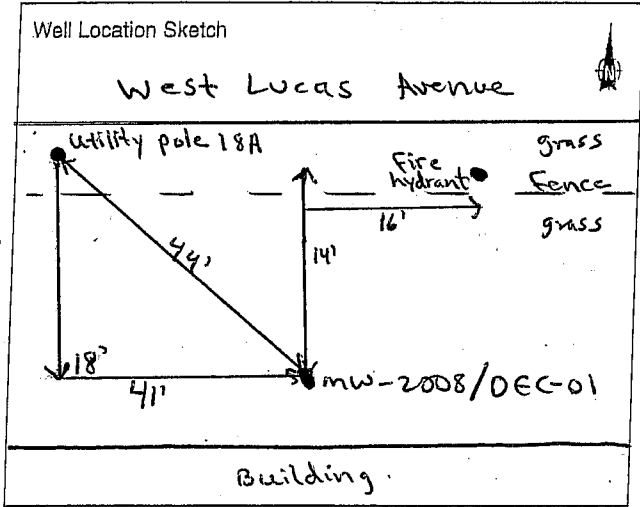 Well Location Sketch
N
West Lucas Avenue
utility pole 18A
grass
Fire
hydrant
Fence
16'
grass
44'
14'
18'
41'
MW-2008/DEC-01
Building.